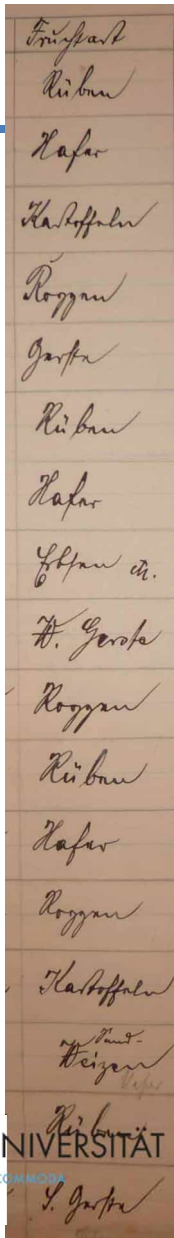 Fruchtart
Rüben
Hafer
Kartoffeln
Roggen
Gerste
Rüben
Hafer
Erbsen u.
W. Gerste
Roggen
Rüben
Hafer
Roggen
Kartoffeln
Sand-
Weizen
Hafer
Rüben
NIVERSITÄT
COMMODA
S. Gerste